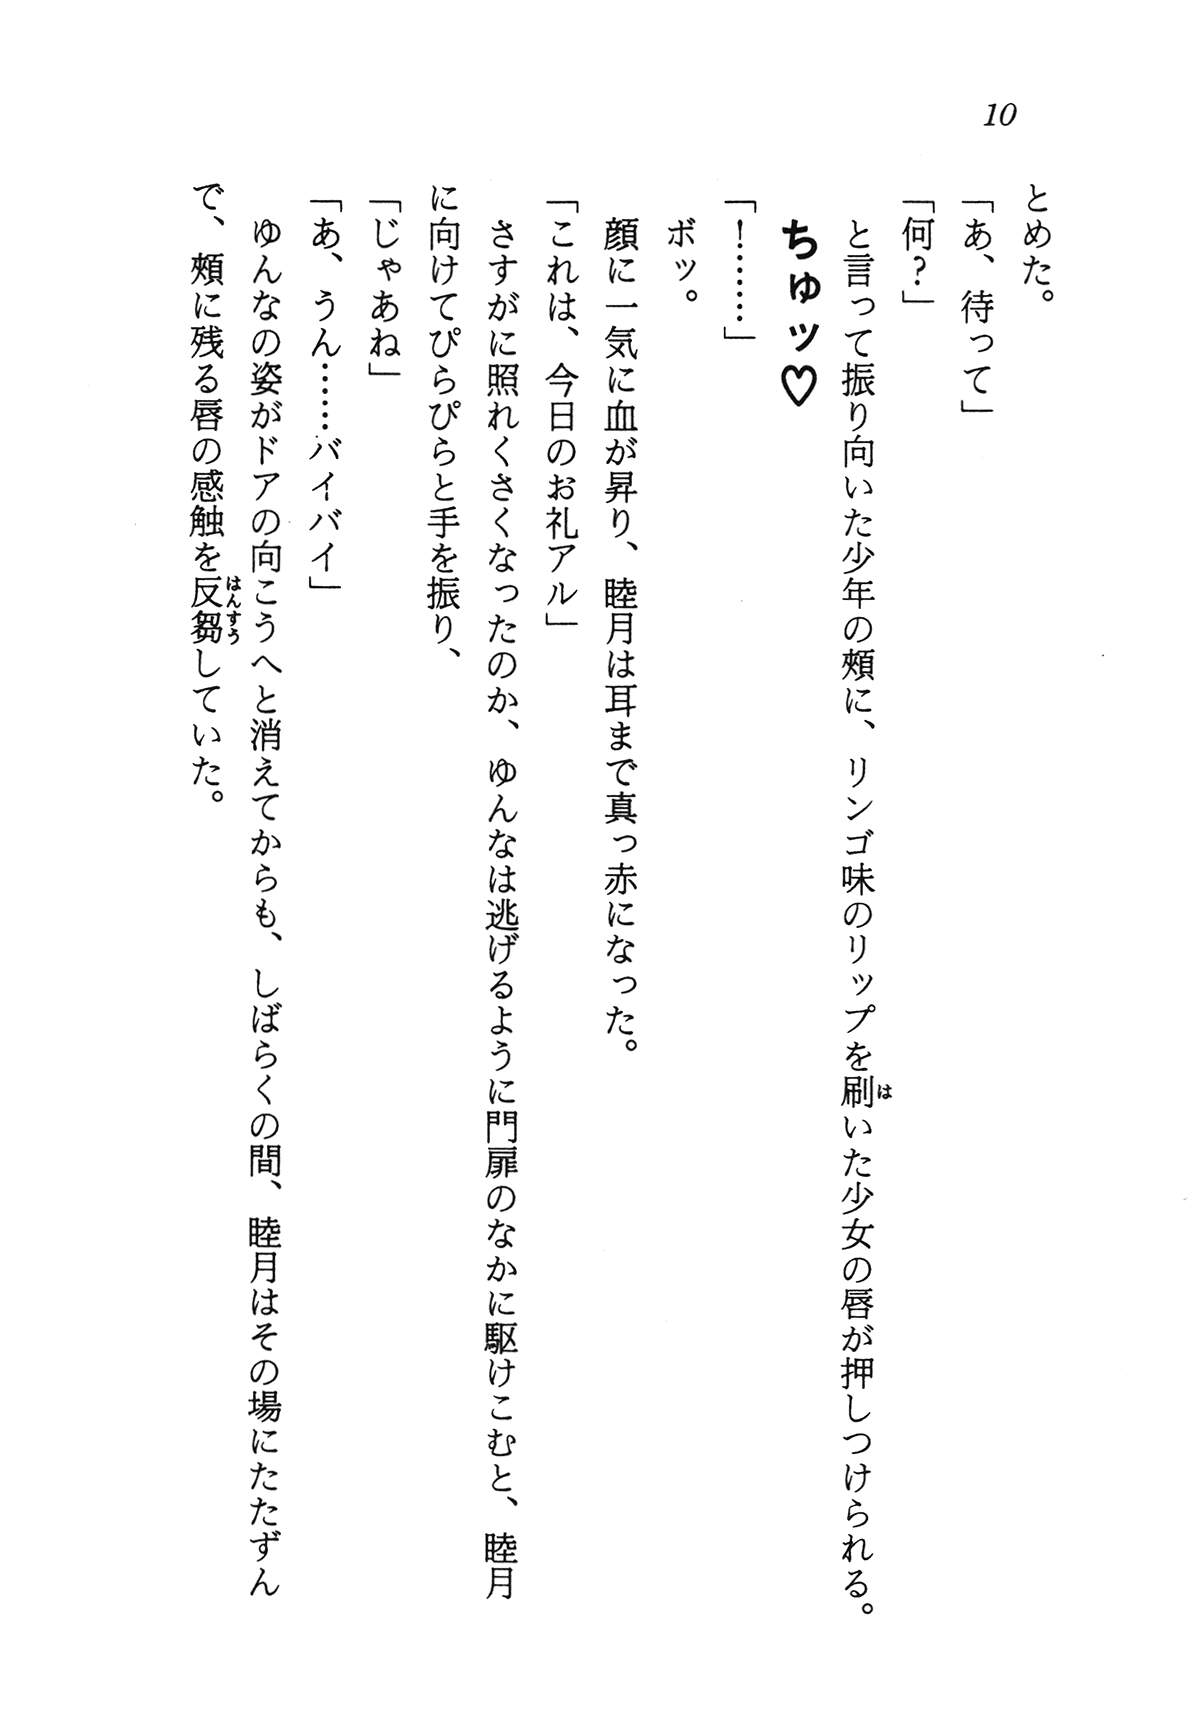 10
とめた。
「あ、待って」
「何？」
と言って振り向いた少年の頰に、リンゴ味のリップを刷いた少女の唇が押しつけられる。
は
ちゅッ♡
「！………」
ボッ。
顔に一気に血が昇り、睦月は耳まで真っ赤になった。
「これは、今日のお礼アル」
さすがに照れくさくなったのか、ゆんなは逃げるように門扉のなかに駆けこむと、睦月
に向けてぴらぴらと手を振り、
「じゃあね」
「あ、うん……バイバイ」
ゆんなの姿がドアの向こうへと消えてからも、しばらくの間、睦月はその場にたたずん
で、頰に残る唇の感触を反芻していた。
はんすう